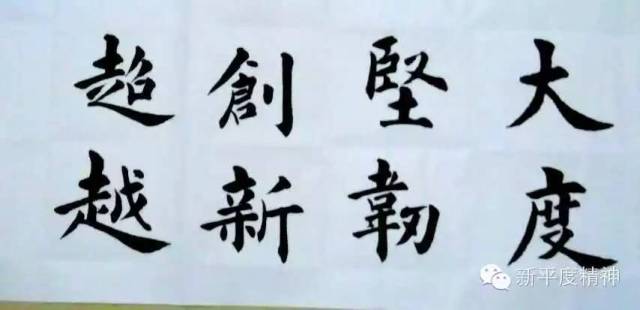 大度
堅韌
創新
超越
新平度精神